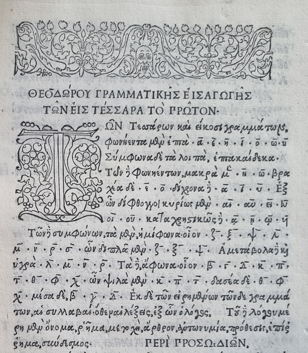 ΘΕΟΔΩΡΟΥ ΓΡΑΜΜΑΤΙΚΗΣ ΕἸΣΑΓΩΓΗΣ
ΤΩΝ ΕΙΣ ΤΕΣΣΑΡΑ ΤΟ ΠΡΩΤΟΝ·
ΤΩΝ Τεσσάρων καὶ εἴκοσι γραμμάτων,
φωνήεντα μὲν ἑπτά· α· ε· η· ι· ο· ω· υ
Σύμφωνα δὲ τὰ λοιπὰ, ἑπτακαίδεκα·
Τῶν ἢ φωνηέντων, μακρὰ μὲν· η· ω· βρα
χέα δὲ· ε· ο· δίχρονα ἢ· α· ι· υ· Ἐξ
ὧν δίφθογγοι κυρίως μὲν· αι· αυ· ει· ευ
οι· ου· καταχρηστικῶς ἢ· ᾳ· ῃ· ῳ· ηυ
Τῶν ἢ συμφώνων, τὰ μὲν, ἡμίφωνα· οἷον· ζ· ξ· ψ· λ·
μ· ν· ρ· σ· ὧν διπλᾶ μὲν· ζ· ξ· ψ· Ἀμετάβολα ἢ κỳ
ὑγρὰ· λ· μ· ν· ρ· Τὰ ἢ, ἄφωνα· οἷον· β· γ· δ· κ· π·
τ· θ· φ· χ· ὧν ψιλὰ μὲν· κ· π· τ· δασέα δὲ· θ· φ·
χ· μέσα δὲ, β· γ· δ· Ἐκ δὲ τῶν εἰρημένων τῶνδε γραμμά
των, αἱ συλλαβαί· ὅθεν αἱ λέξεις, ἐξ ὧν ὁ λόγος· Τοῦ ἢ λόγου μέ
ρη μὲν· ὄνομα, ῥῆμα, μετοχὴ, ἄρθρον, ἀντωνυμία, πρόθεσις, ἐπίῤ
ῥημα, σύνδεσμος· ΠΕΡΙ ΠΡΟΣΩΔΙΩΝ·